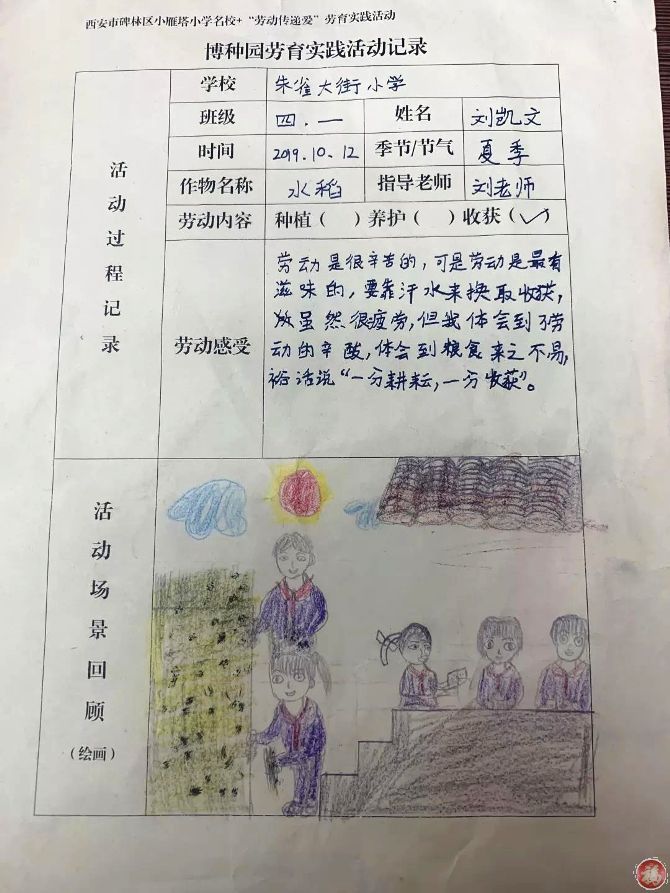 西安市碑林区小雁塔小学名校+“劳动传递爱”劳育实践活动
博种园劳育实践活动记录
活动过程记录
学校 朱雀大街小学
班级 四.一 姓名 刘凯文
时间 2019.10.12 季节/节气 夏季
作物名称 水稻 指导老师 刘老师
劳动内容 种植（ ）养护（ ）收获（✓）
劳动感受
劳动是很辛苦的，可是劳动是最有
滋味的，要靠汗水来换取收获，
虽然很疲劳，但我体会到了劳
动的辛酸，体会到粮食来之不易，
俗话说“一分耕耘，一分收获”。
活动场景回顾
（绘画）
福